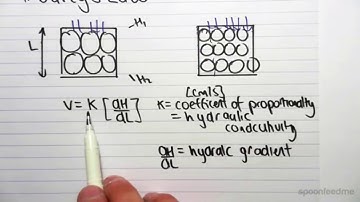 H₁
L
H₂
[cm/s]
V = K [dH/dL]
K = coefficient of proportionality
= hydraulic
condcutivity
dH/dL = hydralic gradient
spoonfeedme